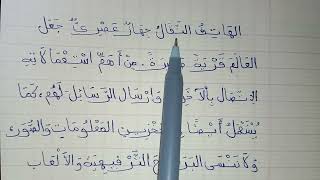 الهَاتِفُ النَّقَالُ جِهَازٌ عَصْرِيٌّ جَعَلَ
العَالَمَ قَرْيَةً صَغِيرَةً. مِنْ أَهَمِّ اسْتِعْمَالَاتِهِ
الِاتِّصَالُ بِالْآخَرِينَ وَإِرْسَالُ الرَّسَائِلِ لَهُمْ، كَمَا
يُسْتَعْمَلُ أَيْضًا تَخْزِينِ المَعْلُومَاتِ وَالصُّوَرِ
وَلَا نَنْسَى التَّرْفِيهِيَّةَ وَالأَلْعَابَ